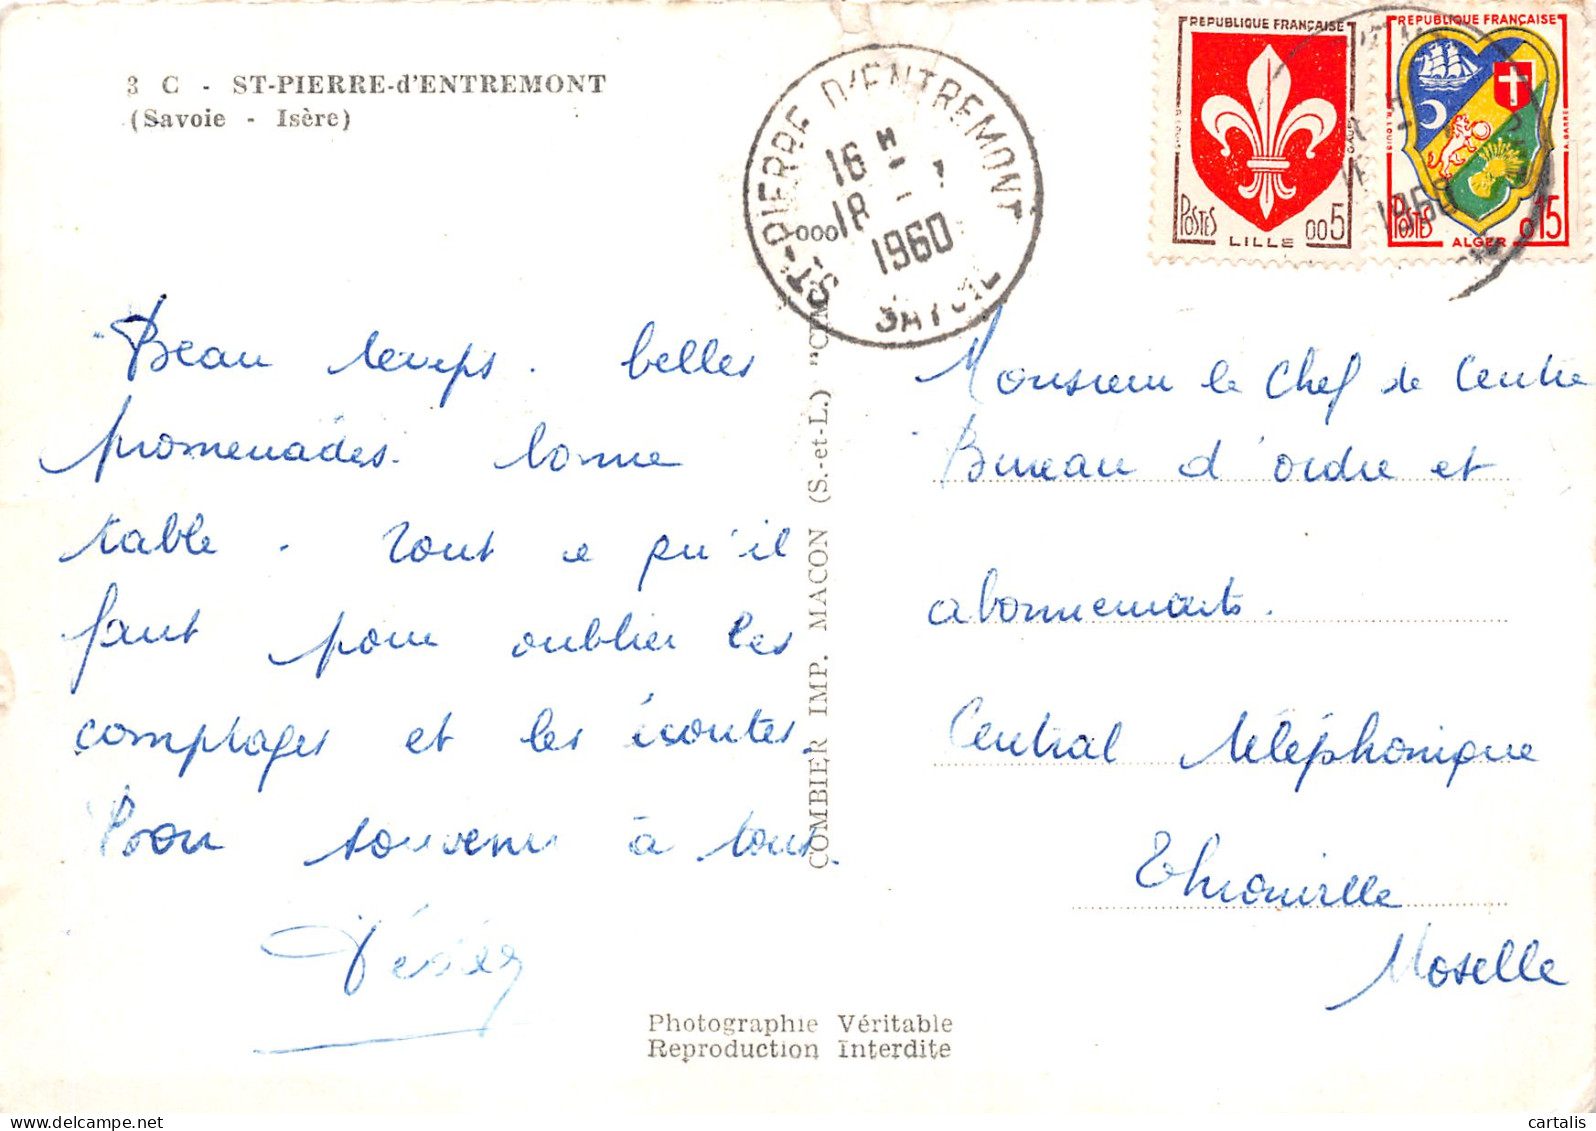 3 C - ST-PIERRE-d'ENTREMONT
(Savoie - Isère)
ST-PIERRE D'ENTREMONT
16 H
18 - 7
1960
SAVOIE
REPUBLIQUE FRANÇAISE
POSTES
LILLE
005
REPUBLIQUE FRANÇAISE
POSTES
ALGER
0,15
1960
Beau temps. belles
promenades. bonne
table. Tout ce qu'il
faut pour oublier les
comptages et les écoutes
Bon souvenir à tous.
COMBIER IMP. MACON (S.-et-L.) "CIM"
Monsieur le Chef de Centre
Bureau d'ordre et
abonnements.
Central téléphonique
Thionville
Moselle
Photographie Véritable
Reproduction Interdite
delcampe.net
cartalis